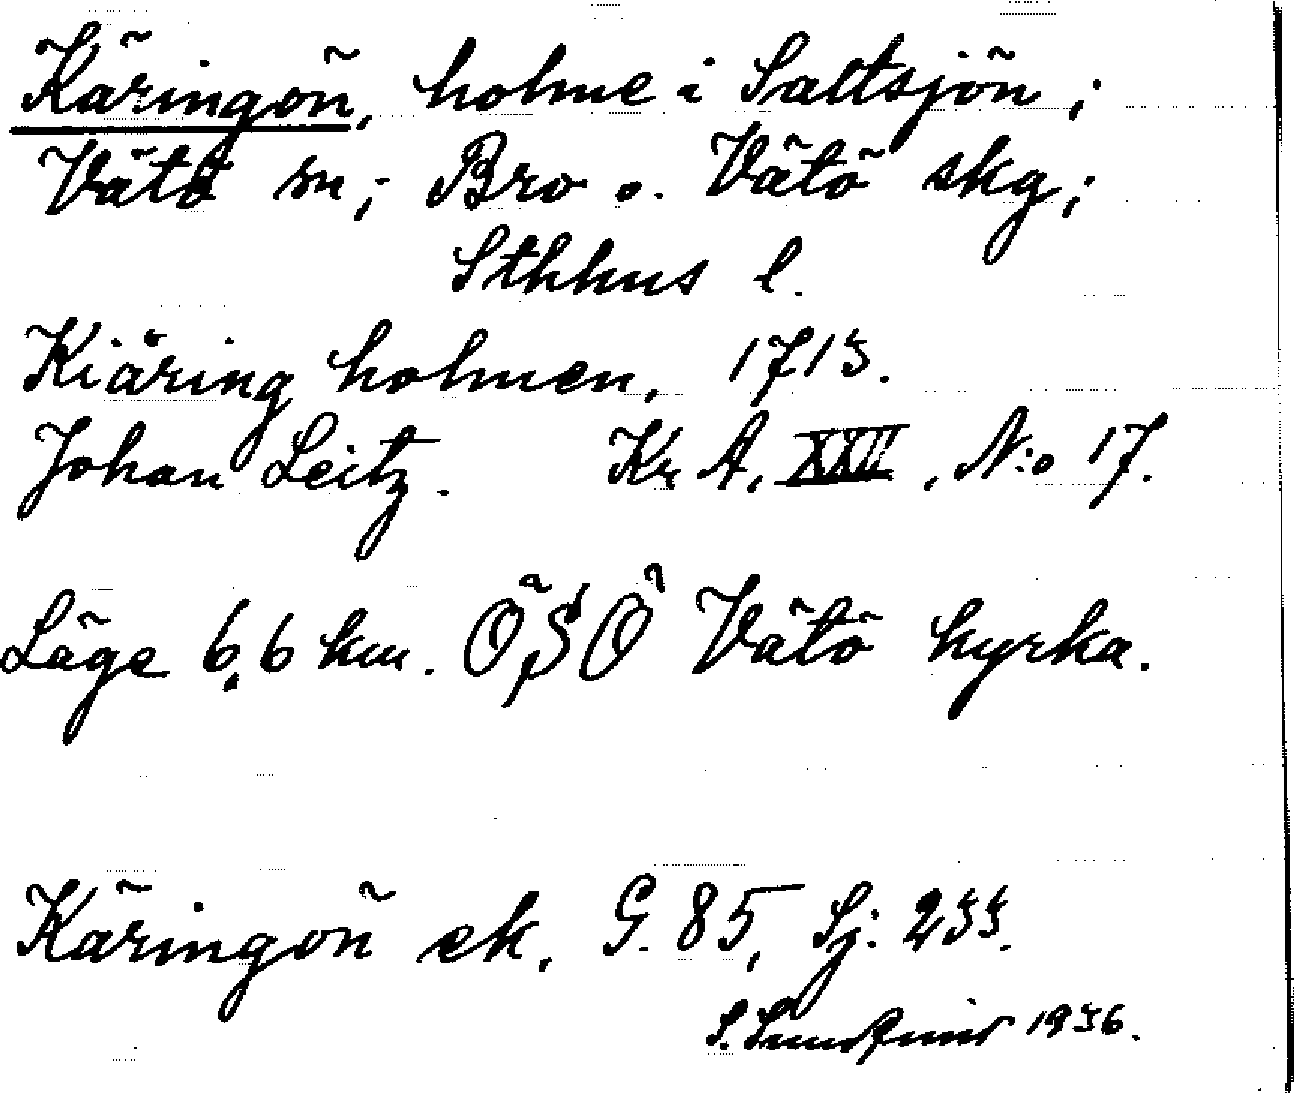 Käringön, holme i Saltsjön;
Vätö sn; Bro o. Vätö skg;
Sthhus l.
Kiäring holmen. 1713.
Johan Leitz. Kr A. XXII, N:o 17.
Läge 6,6 km. ÖSÖ Vätö kyrka.
Käringön ek. G. 85, Sj: 233.
S. 1936.